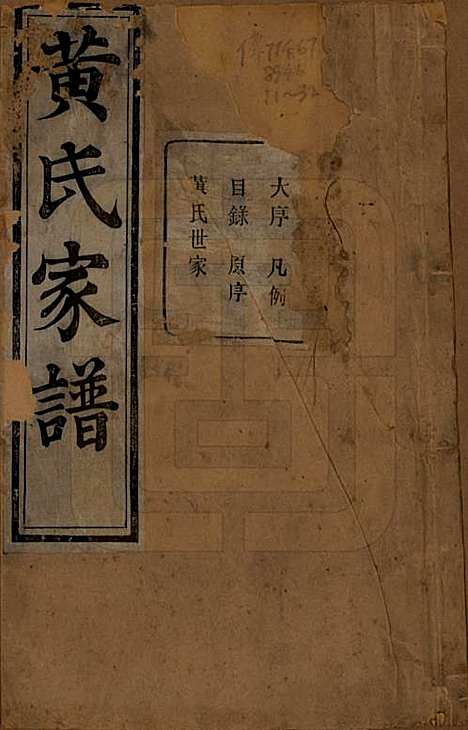 黃氏家譜
大序 凡例
目錄 原序
黃氏世家